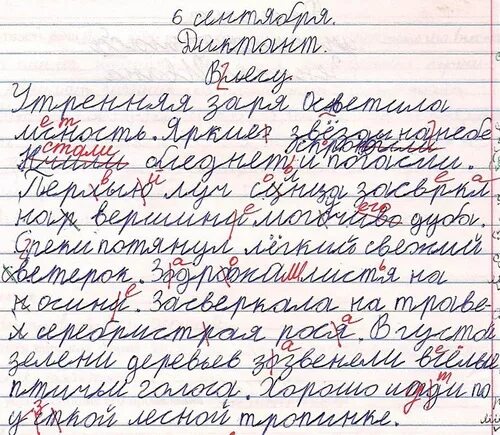 6 сентября.
Диктант.
Влесу.
Утренняя заря осветила
мсность. Яркие звёзды нанебе
стали бледнеть и погасли.
луч сонца засверкл
на вершине могочево дуба.
Среки потянул лёгкий свежий
ветерок. Здрожали листя на
осине. Засверкала на траве
серебристрая роса. В густо
зелени деревьев ззвенели весёлые
птичьи голоса. Хорошо по
у ской лесной тропинке.